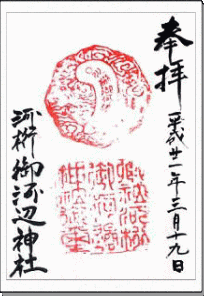 奉拝
平成廿一年三月十九日
河桁御河辺神社